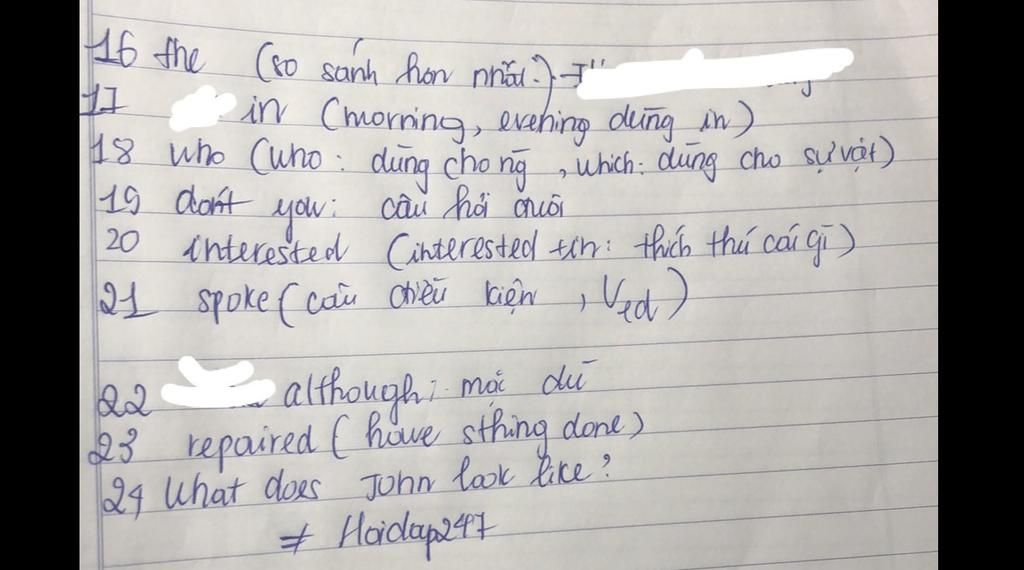 16 the (so sánh hơn nhất.)
17 in (morning, evening dùng in)
18 who (who: dùng cho ng̅, which: dùng cho sự vật)
19 don't you: câu hỏi đuôi
20 interested (interested + in: thích thú cái gì)
21 spoke (câu điều kiện, Ved)
22 although: mặc dù
23 repaired (have sthing done)
24 What does John look like?
≠ Hoidap247